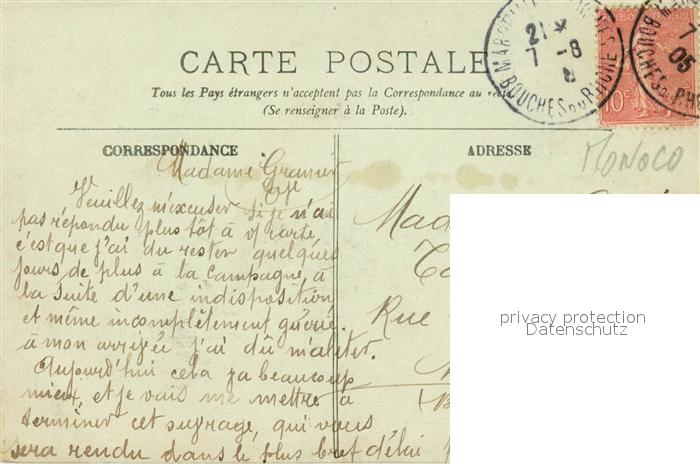 CARTE POSTALE
Tous les Pays étrangers n'acceptent pas la Correspondance au
(Se renseigner à la Poste).
21 *
7 - 8
BOUCHES DU RHÔNE
7
05
BOUCHES
10c
MONOCO
CORRESPONDANCE
ADRESSE
Madame
Veuillez m'excuser si je n'ai
pas répondu plus tôt à v/ carte,
c'est que j'ai du rester quelques
jours de plus à la campagne, à
la suite d'une indisposition,
et même incomplètement guérie.
à mon arrivée j'ai dû m'aliter.
Aujourd'hui cela va beaucoup
mieux, et je vais me mettre à
terminer cet ouvrage, qui vous
sera rendu dans le plus bref délai
Mada
Rue
privacy protection
Datenschutz